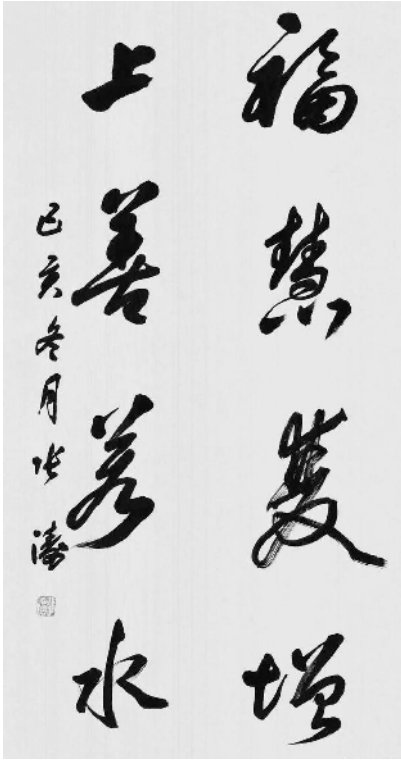 福慧雙增
上善若水
己亥冬月张濤